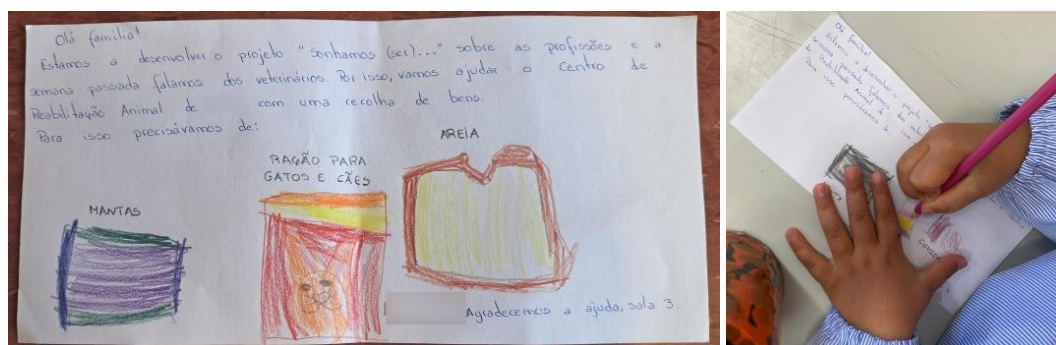 Olá família!
Estamos a desenvolver o projeto "Sonhamos (ser)..." sobre as profissões e a
semana passada falamos dos veterinários. Por isso, vamos ajudar o Centro de
Reabilitação Animal de com uma recolha de bens.
Para isso precisávamos de:
MANTAS
RAÇÃO PARA
GATOS E CÃES
AREIA
Agradecemos a ajuda, sala 3.
Olá família!
Estamos a desenvolver o projeto
semana passada falamos dos
de Reabilitação Animal de
Para isso precisávamos de: